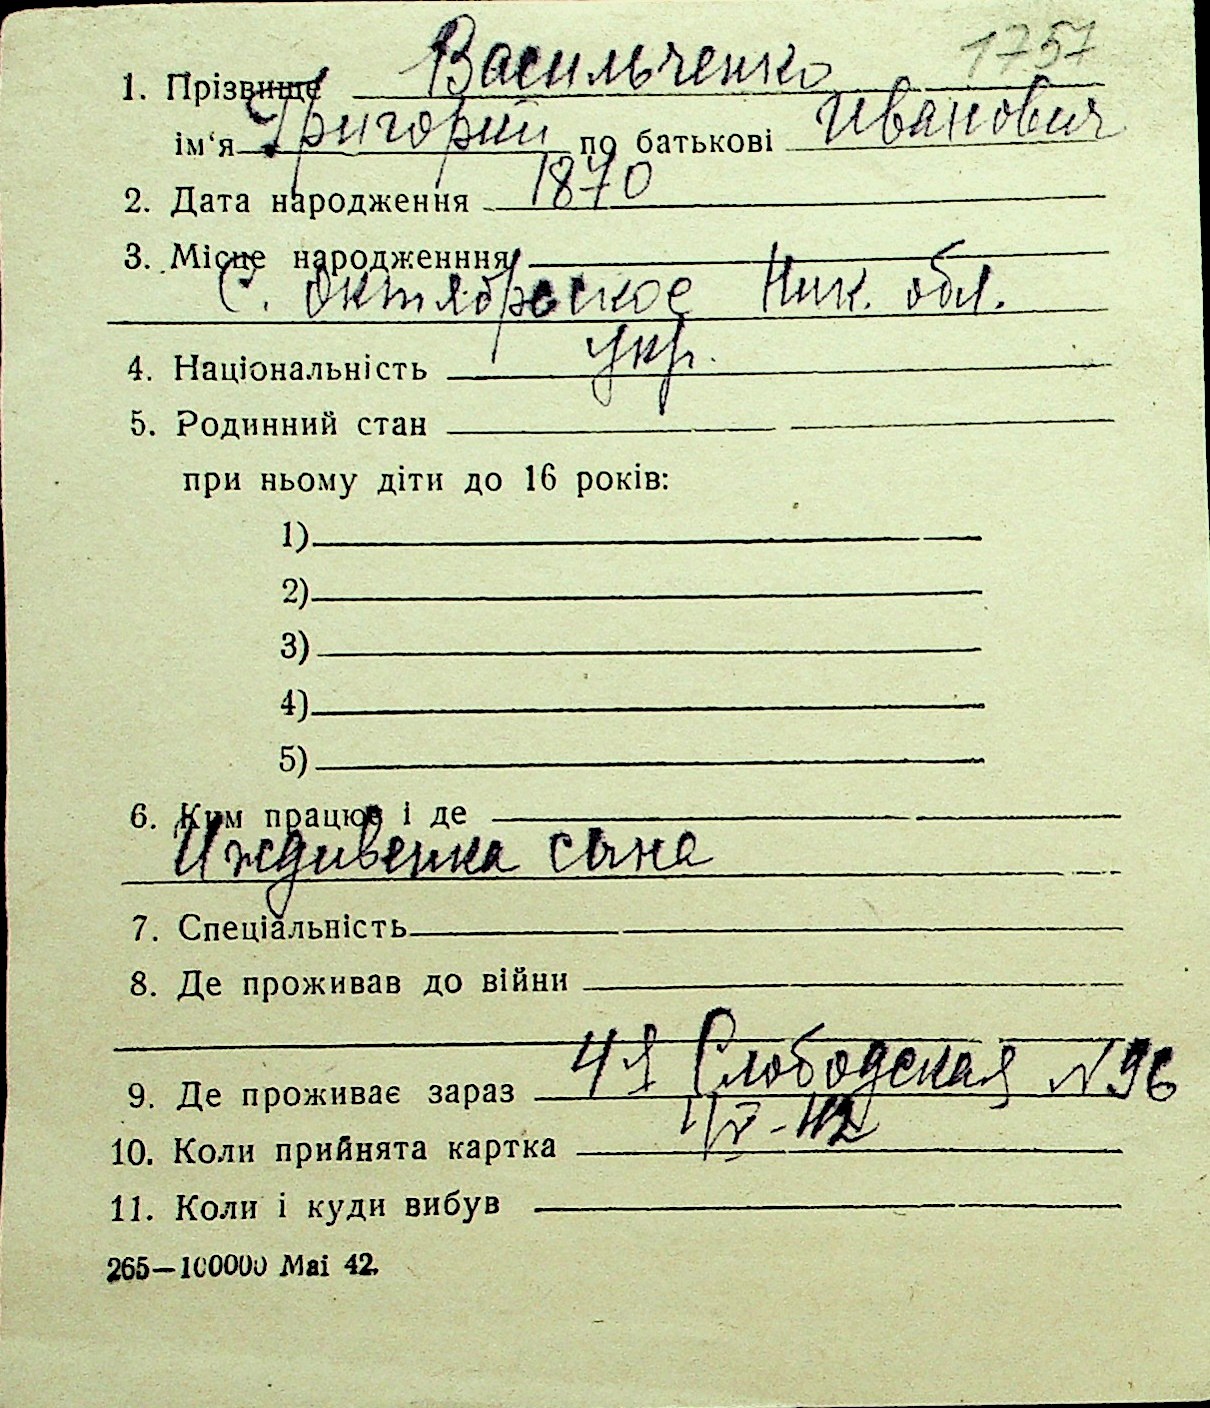 1757
1. Прізвище Васильченко
ім'я Григорий по батькові Иванович
2. Дата народження 1870
3. Місце народженння
с. Октябрьское Ник. обл.
4. Національність укр.
5. Родинний стан
при ньому діти до 16 років:
1)
2)
3)
4)
5)
6. Ким працює і де
Иждивенка сына
7. Спеціальність
8. Де проживав до війни
9. Де проживає зараз 4я Слободская №96
10. Коли прийнята картка 4/V-42
11. Коли і куди вибув
265—100000 Mai 42.